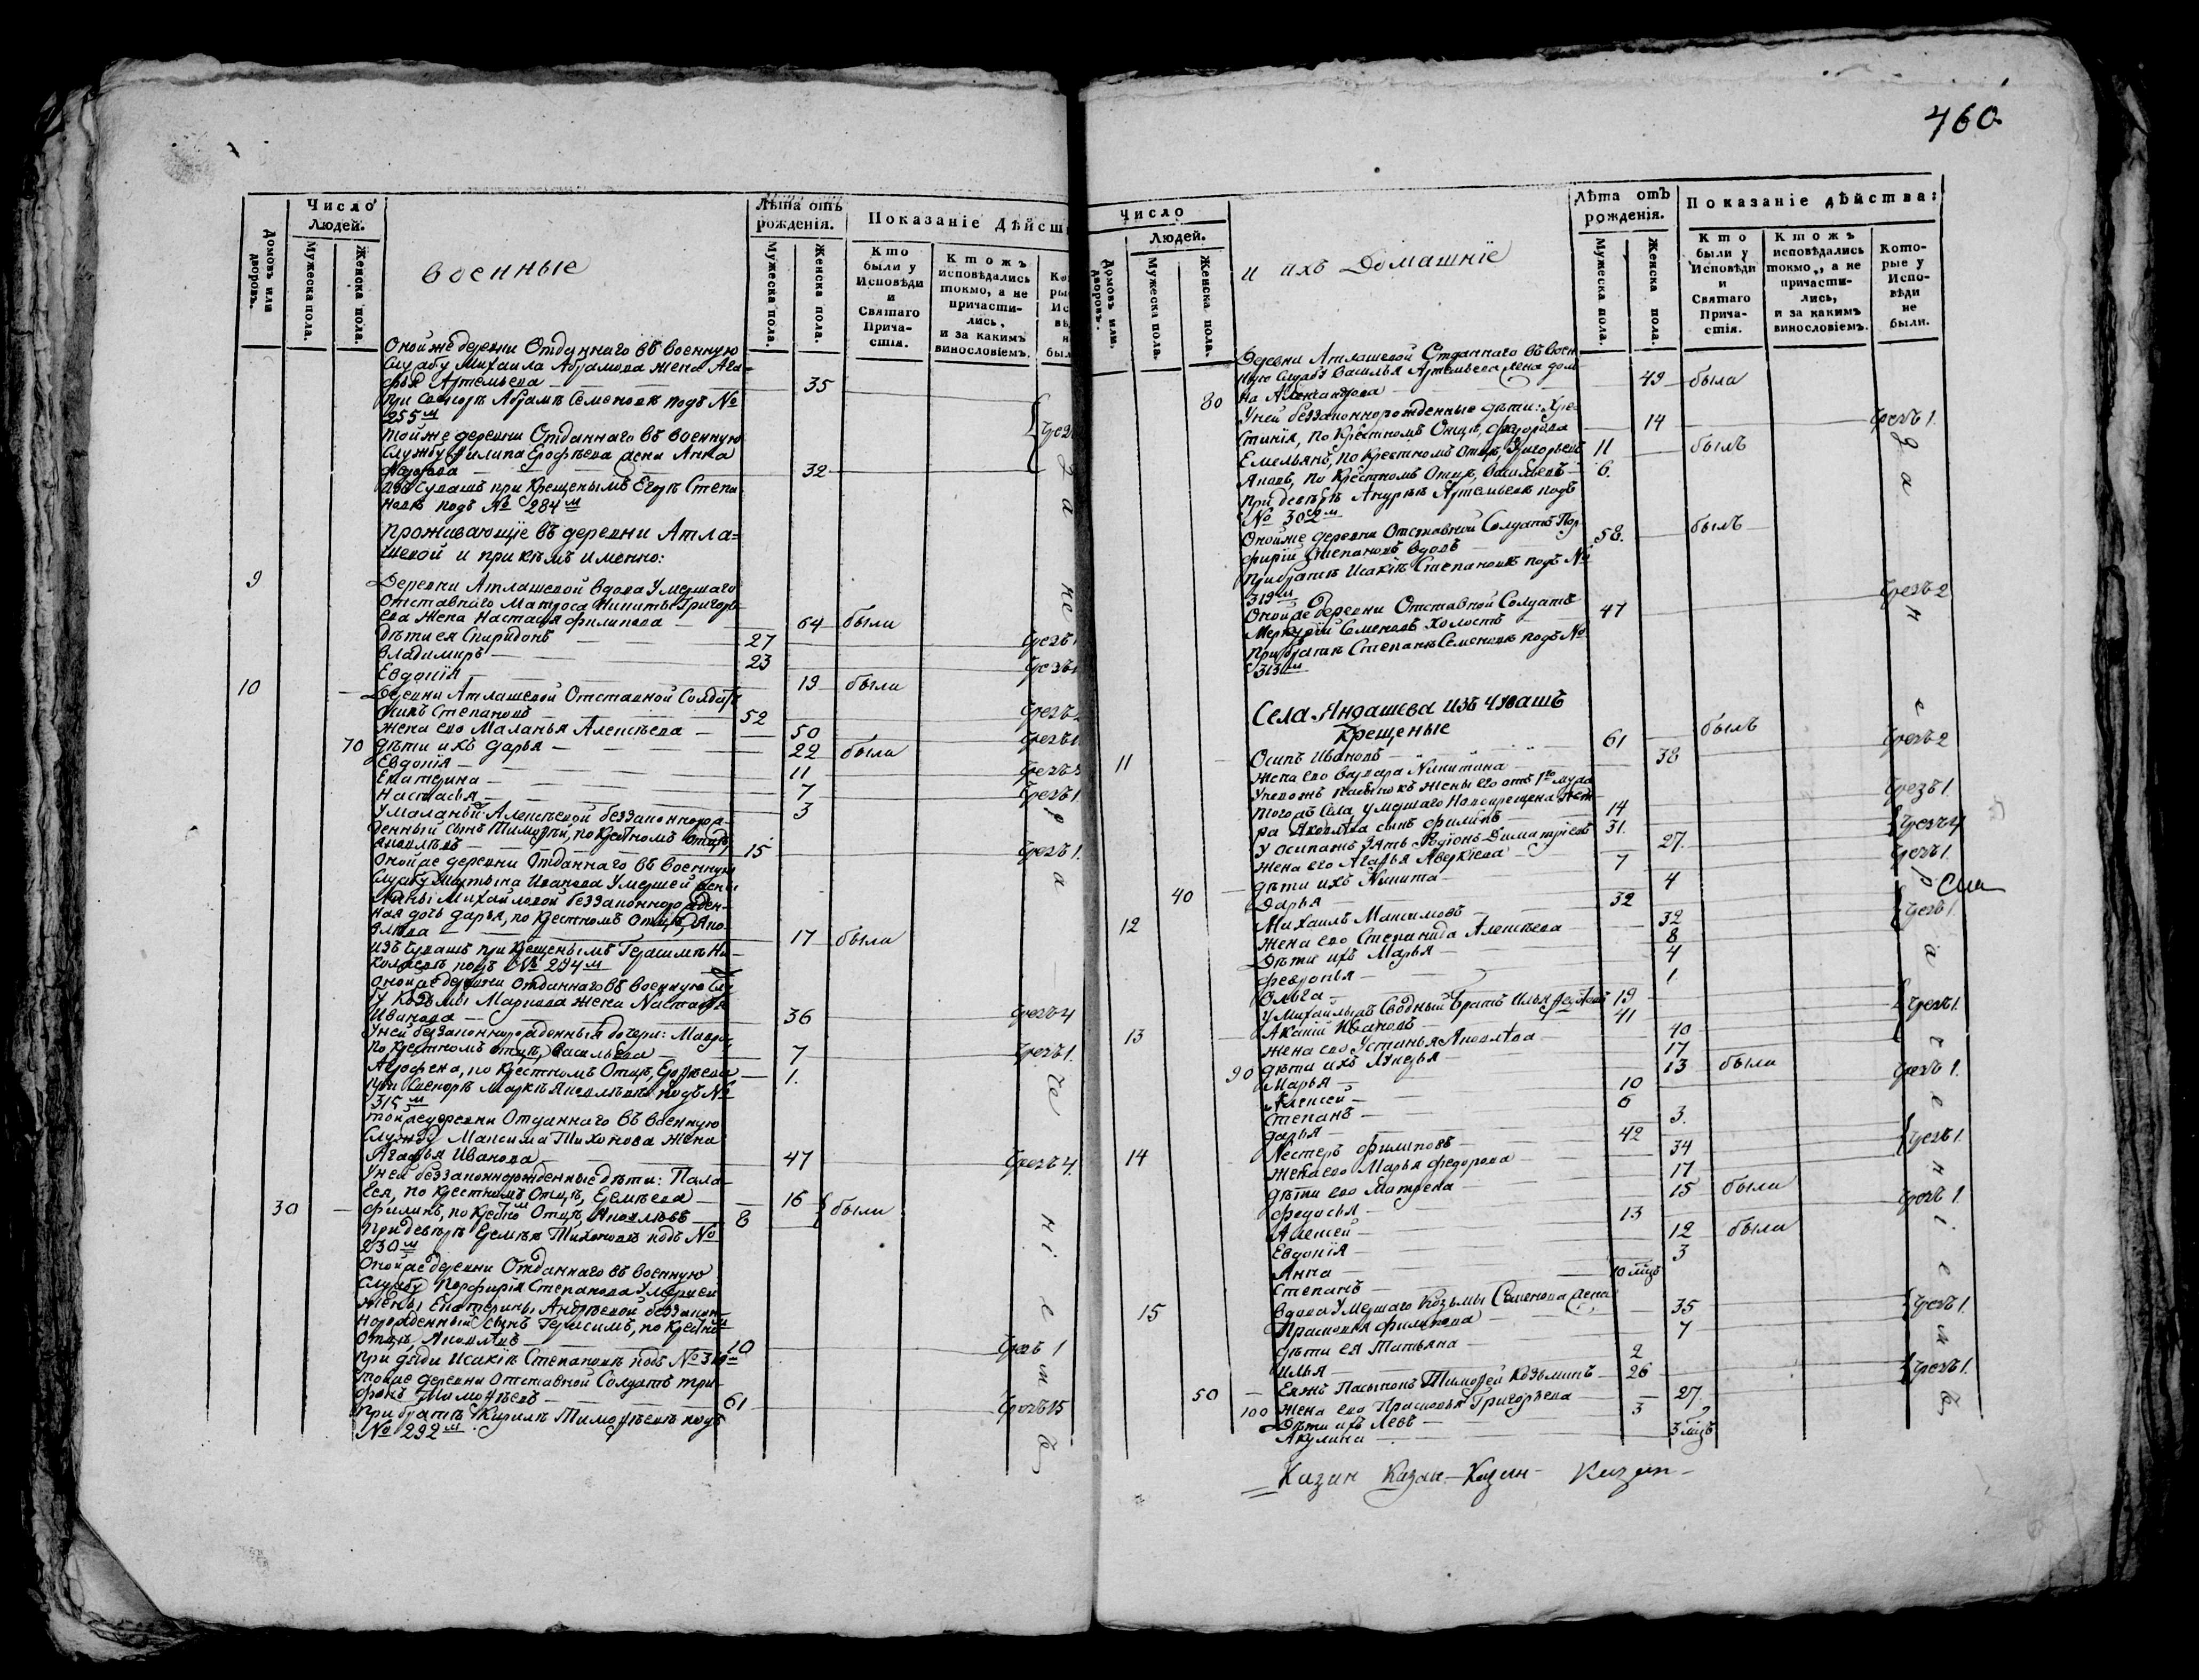 460
Число Людей.
Домовъ или дворовъ.
Мужеска пола.
Женска пола.
военные
Лѣта отъ рожденія.
Мужеска пола.
Женска пола.
Показаніе Дѣйст
Кто были у Исповѣди и Святаго Причастія.
Ктожъ исповѣдались токмо, а не причастились, и за какимъ винословіемъ.
Онойже деревни Отданнаго въ военную
Службу Михаила Абрамова жена Ага=
фья Артемьева 35
при Свекорѣ Абрамѣ Семеновѣ подъ №
255м
тойже деревни Отданнаго въ военную
Службу Филипа Ерофѣева жена Анна
Федорова 32
изъ Чувашъ при Крещенымъ Егорѣ Степа
новѣ подъ № 284м
проживающіе въ деревни Атла=
шевой и при кѣмъ именно:
9 Деревни Атлашевой вдова Умершаго
Отставнаго Матроса Никиты Григорь
ева жена Настасья Филипова 64 были
дѣти ея Спиридонъ 27 чрезъ 1
Владимиръ 23 чрезъ 1
Евдокія 19 были
10 Деревни Атлашевой Отставной Солдатъ
Осипъ Степановъ 52 чрезъ
жена его Маланья Алексѣева 50 чрезъ 1
70 дѣти ихъ Дарья 22 была
Евдокія 11 чрезъ
Екатерина 7 чрезъ 1
Настасья 3
У Маланьи Алексѣевой беззаконнорож-
денный сынъ Тимофей, по крестномъ отцѣ,
Яковлевъ 15 чрезъ 1.
Онойже деревни Отданнаго въ военную
Службу Мартына Иванова Умершей жены
Михайловой беззаконнорожден-
ная дочь Дарья, по крестномъ Отцѣ, Яко-
влева 17 была
изъ Чувашъ при Крещенымъ Герасимѣ Ни-
подъ № 294м
Онойже деревни отданнаго въ военную Слу
бу Козьмы Маркова жена Настасья
Иванова 36 чрезъ 4
У ней беззаконнорожденныя дочери: Мавра
по крестномъ отцѣ, Васильева 7 чрезъ 1.
Агрофена, по крестномъ Отцѣ, 1.
при Свекорѣ Маркѣ Яковлевѣ подъ №
315м
тойже деревни Отданнаго въ военную
Службу Максима Тихонова жена
Агафья Иванова 47 чрезъ 4
У ней беззаконнорожденные дѣти: Пала-
гея, по крестномъ Отцѣ, Еремѣева 16 были
30 Филипъ, по крестно Отцѣ, Яковлевъ 8
при деверѣ Еремѣѣ Тихоновѣ подъ №
230м
Онойже деревни Отданнаго въ военную
Службу Порфирія Степанова Умершей
жены Екатерины Андреевой беззакон-
норожденный сынъ Герасимъ, по крестн
отцѣ, Яковлевъ 10 чрезъ 1
при дяди Исакіѣ Степановѣ подъ № 319м
тойже деревни Отставной Солдатъ Три-
фонъ Тимофѣевъ 61 чрезъ 15
при братѣ Кирилѣ Тимофѣевѣ подъ
№ 292м
Число Людей.
Домовъ или дворовъ.
Мужеска пола.
Женска пола.
и ихъ Домашніе
Лѣта отъ рожденія.
Мужеска пола.
Женска пола.
Показаніе дѣйства:
Кто были у Исповѣди и Святаго Причастія.
Ктожъ исповѣдались токмо, а не причастились, и за какимъ винословіемъ.
Которые у Исповѣди не были.
Деревни Атлашевой Отданнаго въ Воен
ную Службу Василья Артемьева жена дом-
80 на Александрова 49 была
У ней беззаконнорожденные дѣти: Хрис
тинія, по Крестномъ Отцѣ, Федорова 14 чрезъ 1.
Емельянъ, по крестномъ Отцѣ, Григорьевъ 11 былъ
Яковъ, по Крестномъ Отцѣ, Васильевъ 6.
при деверѣ Артемьевѣ подъ
№ 302м
Онойже деревни Отставной Солдатъ Пор
фирій Степановъ вдовъ 58. былъ
при братѣ Исакіѣ Степановѣ подъ №
319м
Онойже деревни Отставной Солдатъ
Меркурій Семеновъ холостъ 47 чрезъ 2
при братѣ Степанѣ Семеновѣ подъ №
313м
Села Яндашева изъ чувашъ
Крещеные
11 Осипъ Ивановъ 61 былъ
жена его Варвара Никитина 38 чрезъ 2
У негожъ пасынокъ жены его отъ 1го мужа
тогожъ Села умершаго Новокрещена
ра Яковлева сынъ Филипъ 14 чрезъ 1.
У Осипажъ зять Родіонъ Димитріевъ 31. чрезъ 4
жена его Агафья Аверкіева 27.
дѣти ихъ Никита 7 чрезъ 1.
40 Дарья 4
12 Михаилъ Максимовъ 32 чрезъ 1.
жена его Степанида Алексѣева 32
Дѣти ихъ Марья 8
Февронья 4
Ольга 1
У Михайлыжъ Сводный Братъ Илья 19
13 Акакій Ивановъ 41 чрезъ 1.
жена его Устинья Яковлева 40
90 дѣти ихъ Лукерья 17
Марья 13 были
Алексей 10 чрезъ 1.
Степанъ 6
Дарья 3.
14 Нестеръ Филиповъ 42 чрезъ 1.
жена его Марья Федорова 34
дѣти его Матрена 17
Федосья 15 были
Алексей 13 чрезъ 1.
Евдокія 12 была
Анна 3
Степанъ 10 мцъ
15 Вдова Умершаго Козьмы Семенова жена
Прасковья Филипова 35 чрезъ 1.
дѣти ея Татьяна 7
Илья 2
50 Еяжъ Пасынокъ Тимофей Козьминъ 26 чрезъ 1.
100 жена его Прасковья Григорьева 27.
Дѣти ихъ Левъ 3
Акулина 3 мцъ
Казан Казан Казан Казан